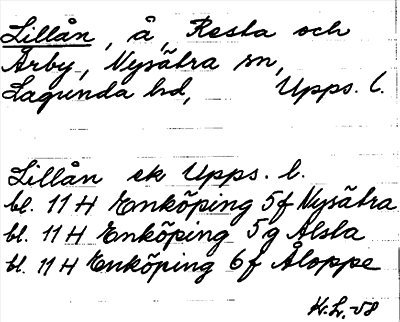 Lillån, å, Resta och
Ärby, Nysätra sn,
Lagunda hd, Upps. l.
Lillån ek Upps. l.
bl. 11 H Enköping 5f Nysätra
bl. 11 H Enköping 5g Alsta
bl. 11 H Enköping 6f Åloppe
K.L.-58